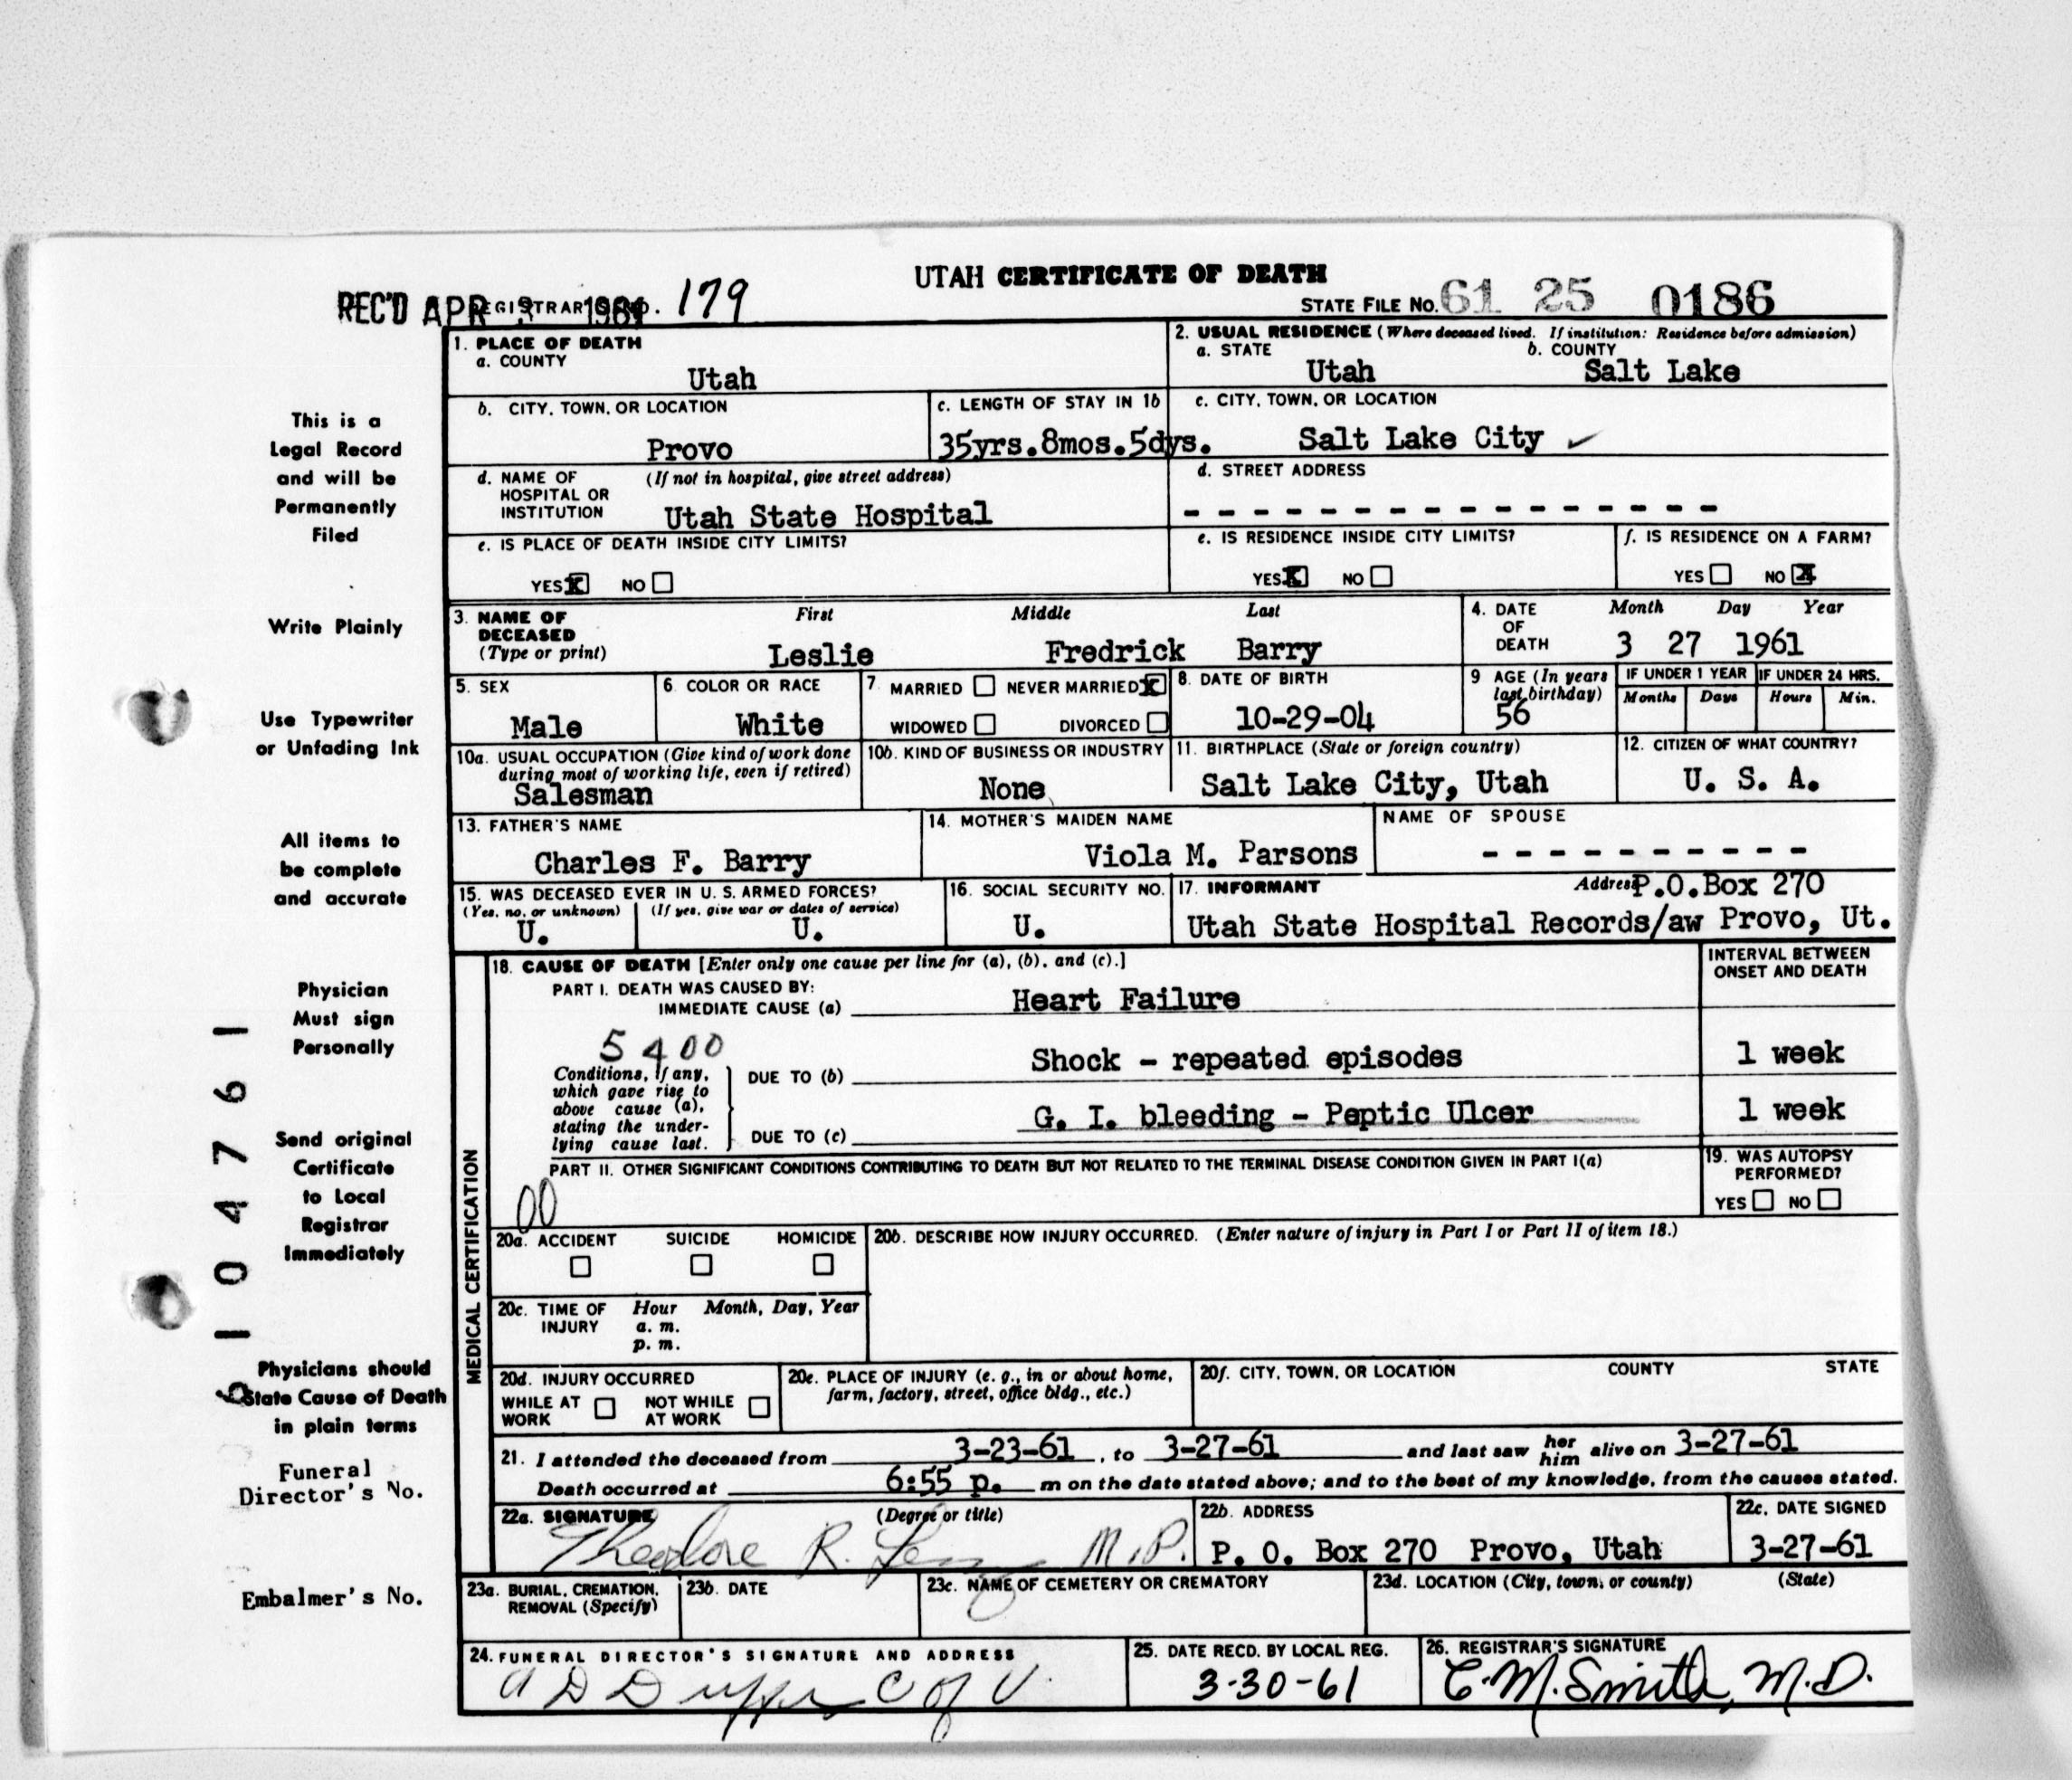 UTAH CERTIFICATE OF DEATH
REC'D APR 3 1961 REGISTRAR'S NO. 179
STATE FILE NO. 61 25 0186
1. PLACE OF DEATH
a. COUNTY
Utah
2. USUAL RESIDENCE (Where deceased lived. If institution: Residence before admission)
a. STATE b. COUNTY
Utah Salt Lake
b. CITY, TOWN, OR LOCATION
Provo
c. LENGTH OF STAY IN 1b
35yrs.8mos.5dys.
c. CITY, TOWN, OR LOCATION
Salt Lake City
d. NAME OF HOSPITAL OR INSTITUTION (If not in hospital, give street address)
Utah State Hospital
d. STREET ADDRESS
- - - - - - - - - - - - - - - -
e. IS PLACE OF DEATH INSIDE CITY LIMITS?
YES X NO
e. IS RESIDENCE INSIDE CITY LIMITS?
YES X NO
f. IS RESIDENCE ON A FARM?
YES NO X
3. NAME OF DECEASED (Type or print)
First Middle Last
Leslie Fredrick Barry
4. DATE OF DEATH
Month Day Year
3 27 1961
5. SEX
Male
6. COLOR OR RACE
White
7. MARRIED NEVER MARRIED X
WIDOWED DIVORCED
8. DATE OF BIRTH
10-29-04
9 AGE (In years last birthday)
56
IF UNDER 1 YEAR IF UNDER 24 HRS.
Months Days Hours Min.
10a. USUAL OCCUPATION (Give kind of work done during most of working life, even if retired)
Salesman
10b. KIND OF BUSINESS OR INDUSTRY
None
11. BIRTHPLACE (State or foreign country)
Salt Lake City, Utah
12. CITIZEN OF WHAT COUNTRY?
U. S. A.
13. FATHER'S NAME
Charles F. Barry
14. MOTHER'S MAIDEN NAME
Viola M. Parsons
NAME OF SPOUSE
- - - - - - - - - -
15. WAS DECEASED EVER IN U. S. ARMED FORCES?
(Yes, no, or unknown) (If yes, give war or dates of service)
U. U.
16. SOCIAL SECURITY NO.
U.
17. INFORMANT Address P.O.Box 270
Utah State Hospital Records/aw Provo, Ut.
MEDICAL CERTIFICATION
18. CAUSE OF DEATH [Enter only one cause per line for (a), (b), and (c).]
INTERVAL BETWEEN ONSET AND DEATH
PART I. DEATH WAS CAUSED BY:
IMMEDIATE CAUSE (a) Heart Failure
5400
Conditions, if any, which gave rise to above cause (a), stating the underlying cause last.
DUE TO (b) Shock - repeated episodes 1 week
DUE TO (c) G. I. bleeding - Peptic Ulcer 1 week
PART II. OTHER SIGNIFICANT CONDITIONS CONTRIBUTING TO DEATH BUT NOT RELATED TO THE TERMINAL DISEASE CONDITION GIVEN IN PART I(a)
00
19. WAS AUTOPSY PERFORMED?
YES NO
20a. ACCIDENT SUICIDE HOMICIDE
20b. DESCRIBE HOW INJURY OCCURRED. (Enter nature of injury in Part I or Part II of item 18.)
20c. TIME OF INJURY Hour Month, Day, Year
a. m.
p. m.
20d. INJURY OCCURRED
WHILE AT WORK NOT WHILE AT WORK
20e. PLACE OF INJURY (e. g., in or about home, farm, factory, street, office bldg., etc.)
20f. CITY, TOWN, OR LOCATION COUNTY STATE
21. I attended the deceased from 3-23-61, to 3-27-61 and last saw her him alive on 3-27-61
Death occurred at 6:55 p. m on the date stated above; and to the best of my knowledge, from the causes stated.
22a. SIGNATURE (Degree or title)
Theodore R. M.D.
22b. ADDRESS
P. O. Box 270 Provo, Utah
22c. DATE SIGNED
3-27-61
23a. BURIAL, CREMATION, REMOVAL (Specify)
23b. DATE
23c. NAME OF CEMETERY OR CREMATORY
23d. LOCATION (City, town, or county) (State)
24. FUNERAL DIRECTOR'S SIGNATURE AND ADDRESS
25. DATE RECD. BY LOCAL REG.
3-30-61
26. REGISTRAR'S SIGNATURE
C. M. Smith, M.D.
This is a
Legal Record
and will be
Permanently
Filed
Write Plainly
Use Typewriter
or Unfading Ink
All items to
be complete
and accurate
Physician
Must sign
Personally
Send original
Certificate
to Local
Registrar
Immediately
Physicians should
State Cause of Death
in plain terms
Funeral
Director's No.
Embalmer's No.
6104761